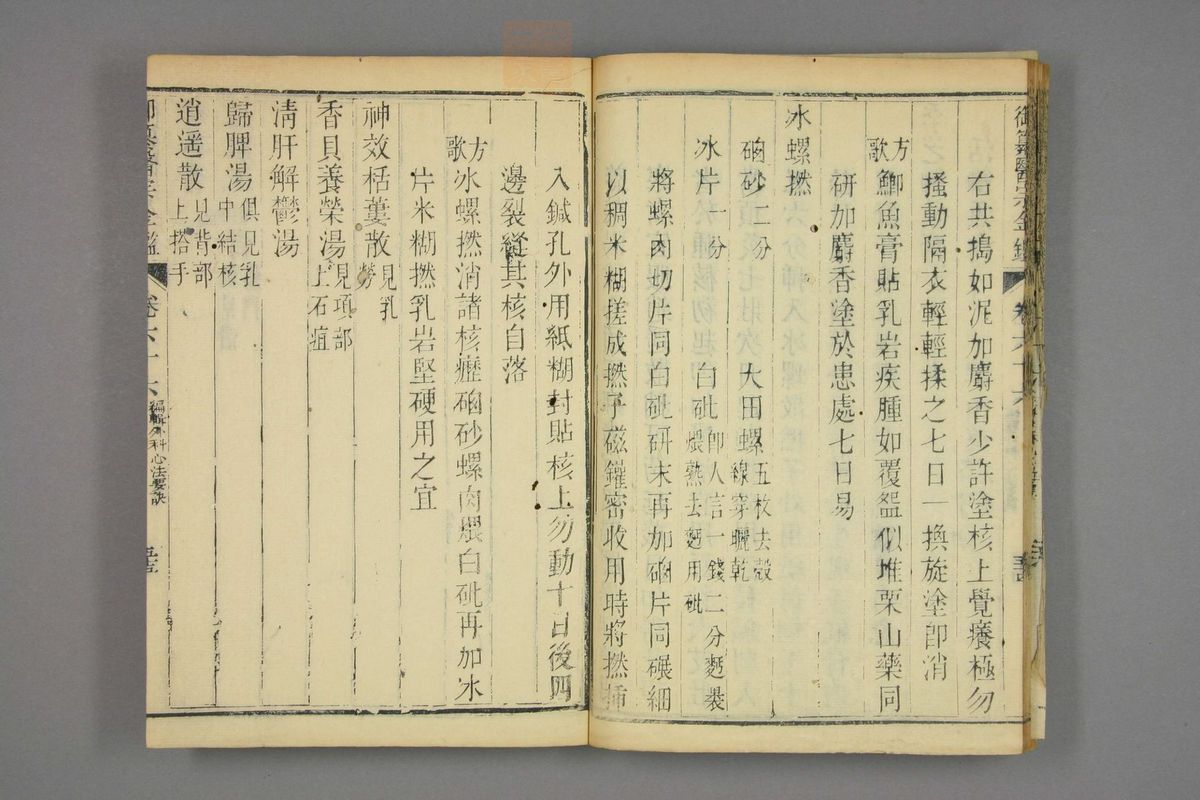 御纂醫宗金鑑 卷六十六
右共搗如泥加麝香少許塗核上覺癢極勿
搔動隔衣輕輕揉之七日一換旋塗即消
方歌 鯽魚膏貼乳岩疾腫如覆盌似堆栗山藥同
研加麝香塗於患處七日易
冰螺撚
硇砂二分 大田螺五枚去殼線穿曬乾
冰片一分 白砒即人言一錢二分麪裹煨熟去麪用砒
將螺肉切片同白砒研末再加硇片同碾細
以稠米糊搓成撚子磁鑵密收用時將撚插
入鍼孔外用紙糊封貼核上勿動十日後四
邊裂縫其核自落
方歌 冰螺撚消諸核癧硇砂螺肉煨白砒再加冰
片米糊撚乳岩堅硬用之宜
神效栝蔞散見乳勞
香貝養榮湯見項部上石疽
清肝解鬱湯
歸脾湯俱見乳中結核
逍遥散見背部上搭手
御纂醫宗金鑑 卷六十六 編輯外科心法要訣